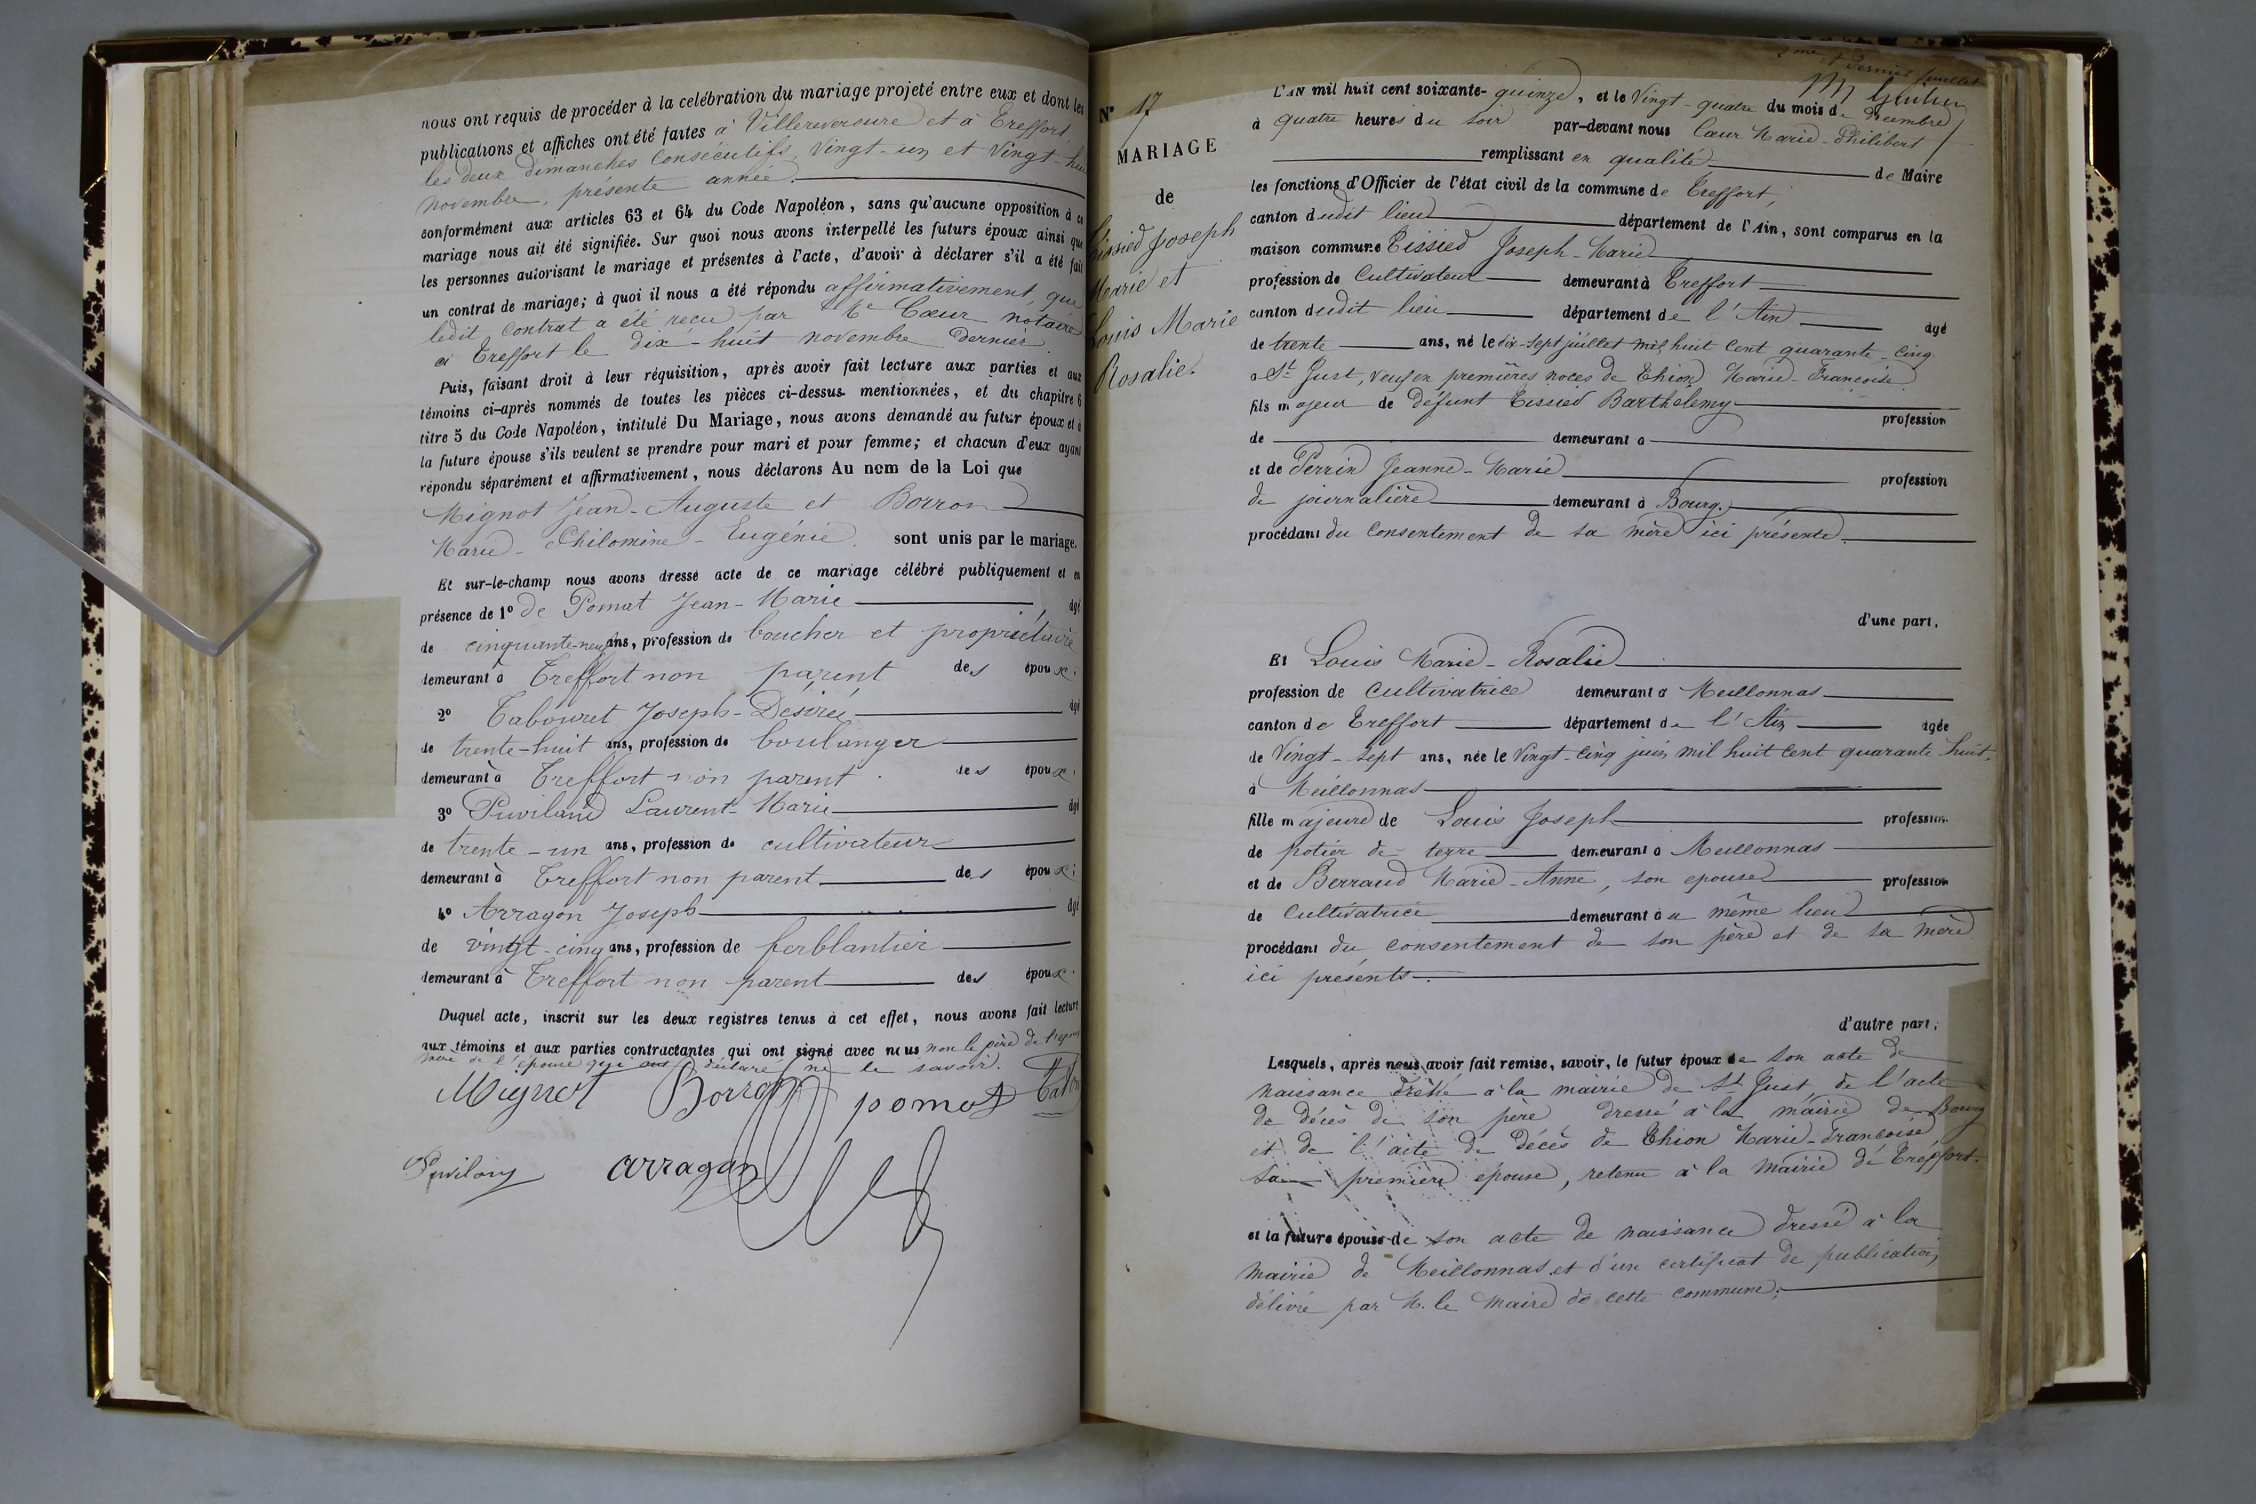 nous ont requis de procéder à la celébration du mariage projeté entre eux et dont les
publications et affiches ont été faites à Villereversure et à Treffort
les deux dimanches consécutifs, vingt-un et vingt-hui
novembre, présente année.
conformément aux articles 63 et 64 du Code Napoléon, sans qu'aucune opposition à ce
mariage nous ait été signifiée. Sur quoi nous avons interpellé les futurs époux ainsi que
les personnes autorisant le mariage et présentes à l'acte, d'avoir à déclarer s'il a été fait
un contrat de mariage; à quoi il nous a été répondu affirmativement, que
ledit contrat a été reçu par Me Cœur notaire
à Treffort le dix-huit novembre dernier.
Puis, faisant droit à leur réquisition, après avoir fait lecture aux parties et aux
témoins ci-après nommés de toutes les pièces ci-dessus mentionnées, et du chapitre 6
titre 5 du Code Napoléon, intitulé Du Mariage, nous avons demandé au futur époux et à
la future épouse s'ils veulent se prendre pour mari et pour femme; et chacun d'eux ayant
répondu séparément et affirmativement, nous déclarons Au nom de la Loi que
Mignot Jean-Auguste et Borron
Marie-Philomine-Eugénie. sont unis par le mariage.
Et sur-le-champ nous avons dressé acte de ce mariage célébré publiquement et en
présence de 1° de Pomat Jean-Marie, âgé
de cinquante-neuf ans, profession de boucher et propriétaire
demeurant à Treffort non parent des époux.
2° Tabouret Joseph-Désiré, âgé
de trente-huit ans, profession de boulanger
demeurant à Treffort non parent. des époux.
3° Puviland Laurent-Marie âgé
de trente-un ans, profession de cultivateur
demeurant à Treffort non parent des époux;
4° Arragon Joseph âgé
de vingt-cinq ans, profession de ferblantier
demeurant à Treffort non parent des époux.
Duquel acte, inscrit sur les deux registres tenus à cet effet, nous avons fait lecture
aux témoins et aux parties contractantes qui ont signé avec nous non le père de l'époux
mère de l'épouse qui ont déclaré ne le savoir.
Mignot Borron pomat Tab
Puviland arragon
2me et Dernier feuillet
N° 17
MARIAGE
de
Tissied Joseph
Marie et
Louis Marie
Rosalie.
L'AN mil huit cent soixante-quinze, et le Vingt-quatre du mois de Décembre
à quatre heures du soir par-devant nous Cœur Marie-Philibert
remplissant en qualité de Maire
les fonctions d'Officier de l'état civil de la commune de Treffort,
canton dudit lieu département de l'Ain, sont comparus en la
maison commune Tissied Joseph-Marie
profession de Cultivateur demeurant à Treffort
canton dudit lieu département de l'Ain âgé
de trente ans, né le dix-sept juillet mil huit cent quarante-cinq
à St Just, veuf en premières noces de Thion Marie-Françoise
fils majeur de défunt Tissied Barthelemy
profession
de demeurant à
et de Perrin Jeanne-Marie
profession
de journalière demeurant à Bourg.
procédant du consentement de sa mère ici présente.
d'une part.
Et Louis Marie-Rosalie
profession de cultivatrice demeurant à Meillonnas
canton de Treffort département de l'Ain âgée
de Vingt-sept ans, née le Vingt-cinq juin mil huit cent quarante huit,
à Meillonnas
fille majeure de Louis Joseph profession
de potier de terre demeurant à Meillonnas
et de Berraud Marie-Anne, son epouse profession
de Cultivatrice demeurant à u même lieu
procédant du consentement de son père et de sa mère
ici présents.
d'autre part;
Lesquels, après nous avoir fait remise, savoir, le futur époux de son acte de
naissance dressé à la mairie de St Just, de l'acte
de décès de son père dressé à la mairie de Bourg
et de l'acte de décès de Thion Marie-Françoise
sa première épouse, retenu à la Mairie de Treffort.
et la future épouse de son acte de naissance dressé à la
mairie de Meillonnas et d'un certificat de publication
délivré par M. le Maire de cette commune;